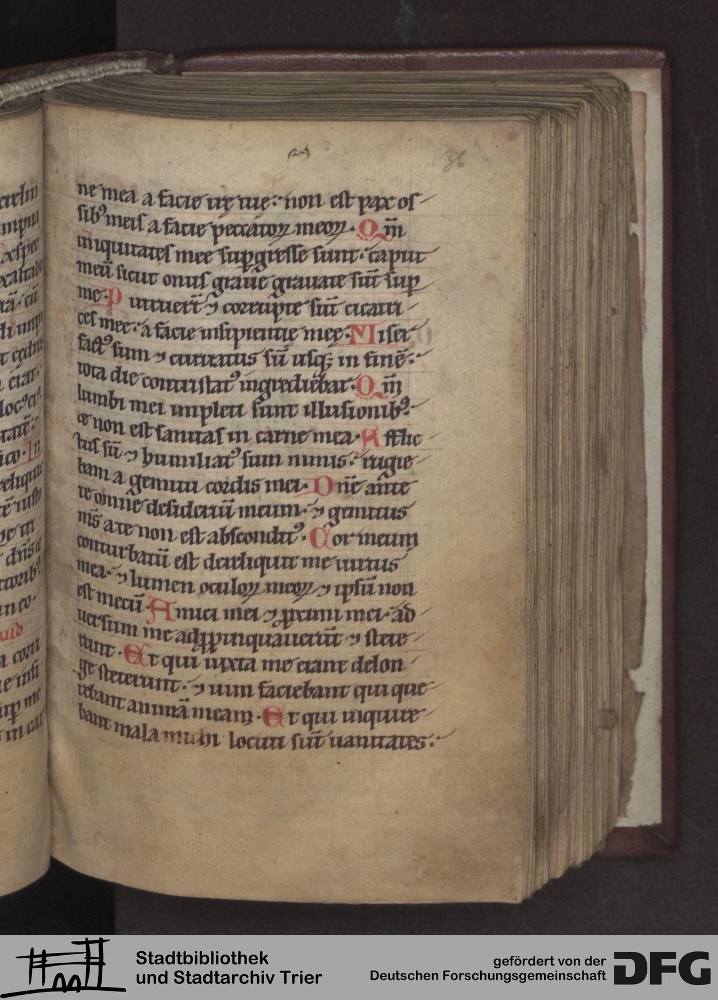 36
ne mea a facie ire tue: non est pax os
sib' meis a facie peccatoꝝ meoꝝ. Qm̄
iniquitates mee suꝑgresse sunt: caput
meū sicut onus graue grauate sūt suꝑ
me. Putruerūt ⁊ corrupte sūt cicatri
ces mee: a facie insipientie mee. Miser
fact' sum ⁊ curuatus sū usq; in finē:
tota die contristat' ingrediebar. Qm̄
lumbi mei impleti sunt illusionib':
et non est sanitas in carne mea. Afflic
tus sū ⁊ humiliat' sum nimis: rugie
bam a gemitu cordis mei. Dn̄e ante
te omne desideriū meum: ⁊ gemitus
ms̄ a te non est abscondit'. Cor meum
conturbatū est dereliquit me uirtus
mea: ⁊ lumen oculoꝝ meoꝝ ⁊ ipsū non
est mecū. Amici mei ⁊ ꝓximi mei: ad
uersum me adꝓpinquauerūt ⁊ stete
runt. Et qui iuxta me erant de lon
ge steterunt: ⁊ uim faciebant qui que
rebant animā meam. Et qui inquire
bant mala michi locuti sūt uanitates:
Stadtbibliothek
und Stadtarchiv Trier
gefördert von der
Deutschen Forschungsgemeinschaft
DFG